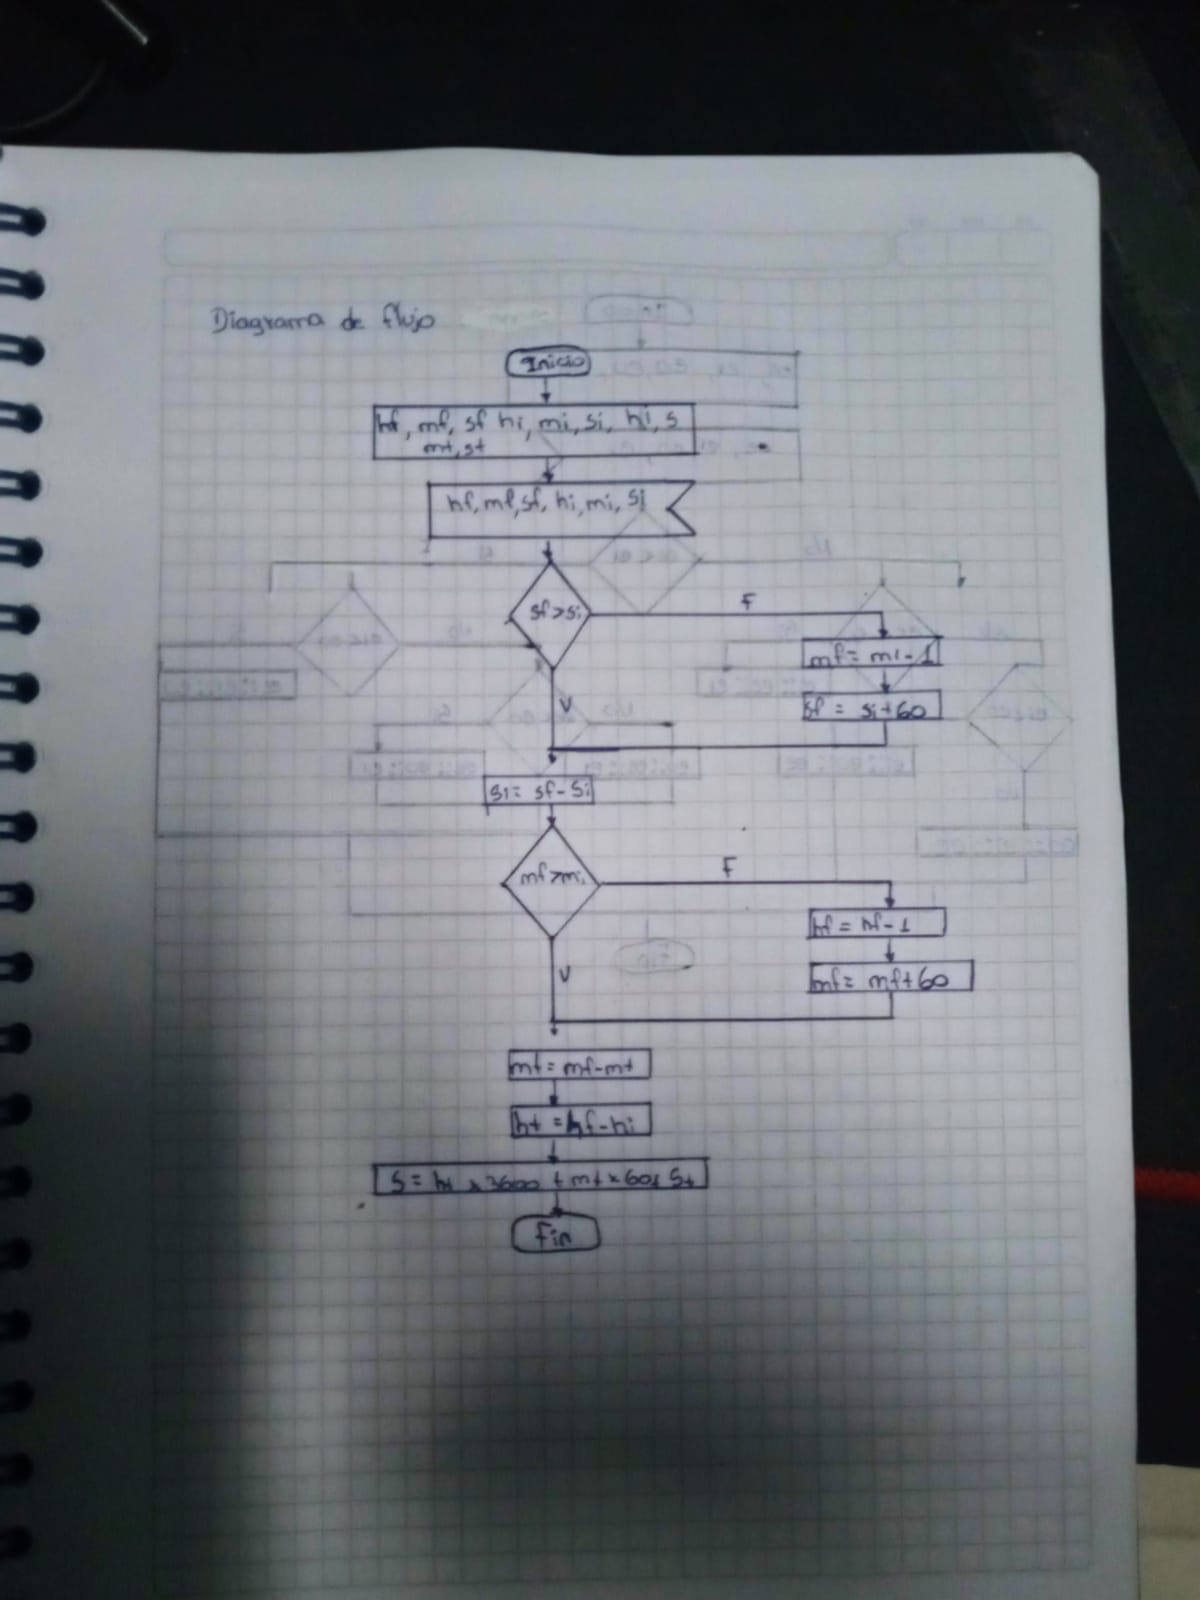 Diagrama de flujo
Inicio
hf, mf, sf hi, mi, si, hi, s
mt, st
hf, mf, sf, hi, mi, si
sf > si
F
mf = mi - 1
sf = si + 60
V
si = sf - si
mf > mi
F
hf = hf - 1
mf = mf + 60
V
mt = mf - mt
ht = hf - hi
S = ht x 3600 + mt x 60 + St
Fin